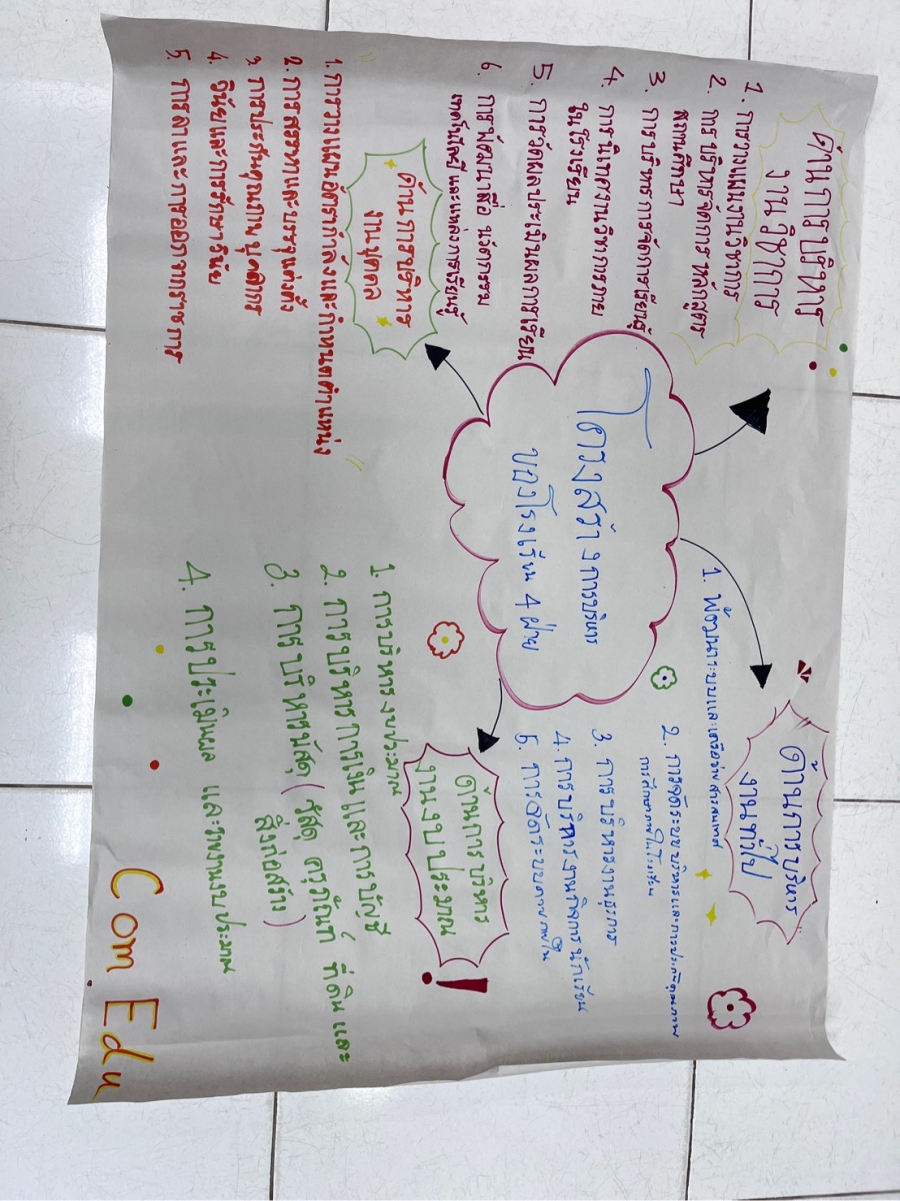 โครงสร้างการบริหาร
ของโรงเรียน 4 ฝ่าย
ด้านการบริหาร
งานวิชาการ
1. การวางแผนงานวิชาการ
2. การบริหารจัดการหลักสูตร
สถานศึกษา
3. การบริหารการจัดการเรียนรู้
4. การนิเทศงานวิชาการภาย
ในโรงเรียน
5. การวัดผลประเมินผลการเรียน
6. การพัฒนาสื่อ นวัตกรรม
เทคโนโลยีและแหล่งการเรียนรู้
ด้านการบริหาร
งานทั่วไป
1. พัฒนาระบบและเครือข่ายสารสนเทศ
2. การจัดระบบบริหารและการประกันคุณภาพ
การศึกษาภายในโรงเรียน
3. การบริหารงานธุรการ
4. การบริหารงานกิจการนักเรียน
5. การจัดระบบควบคุมภายใน
ด้านการบริหาร
งานบุคคล
1. การวางแผนอัตรากำลังและกำหนดตำแหน่ง
2. การสรรหาและบรรจุแต่งตั้ง
3. การประเมินคุณภาพบุคลากร
4. วินัยและการรักษาวินัย
5. การลาและการออกจากราชการ
ด้านการบริหาร
งานงบประมาณ
1. การบริหารงบประมาณ
2. การบริหารการเงินและการบัญชี
3. การบริหารพัสดุ (วัสดุ ครุภัณฑ์ ที่ดินและ
สิ่งก่อสร้าง)
4. การประเมินผล และรายงานงบประมาณ
Com Edu